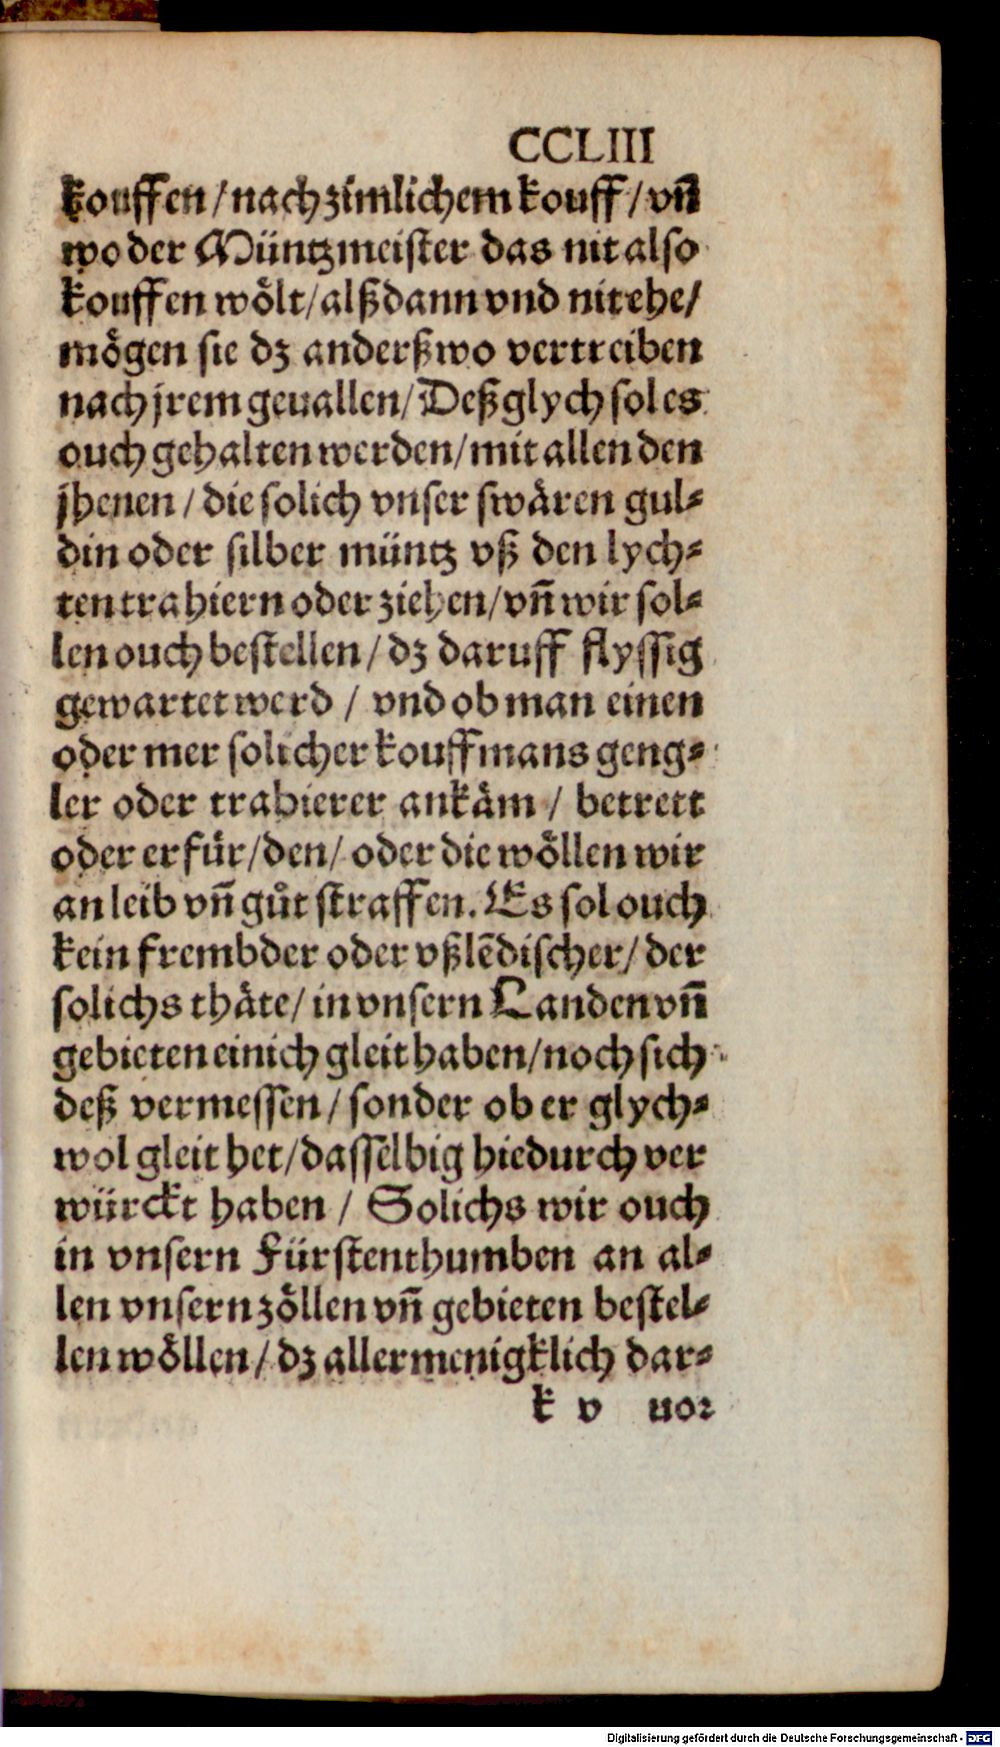 CCLIII
kouffen/nach zimlichem kouff/vñ
wo der Müntzmeister das nit also
kouffen wölt/alßdann vnd nit ehe/
mögen sie dz anderßwo vertreiben
nach jrem geuallen/Deßglych sol es
ouch gehalten werden/mit allen den
jhenen/die solich vnser swären gul⸗
din oder silber müntz vß den lych⸗
ten trahiern oder ziehen/vñ wir sol⸗
len ouch bestellen/dz daruff flyssig
gewartet werd/vnd ob man einen
oder mer solicher kouffmans geng⸗
ler oder trahierer ankäm/betrett
oder erfür/den/oder die wöllen wir
an leib vñ gůt straffen. Es sol ouch
kein frembder oder vßlēdischer/der
solichs thäte/in vnsern Landen vñ
gebieten einich gleit haben/noch sich
deß vermessen/sonder ob er glych⸗
wol gleit het/dasselbig hiedurch ver
würckt haben/Solichs wir ouch
in vnsern Fürstenthumben an al⸗
len vnsern zöllen vñ gebieten bestel⸗
len wöllen/dz allermenigklich dar⸗
k v uor
Digitalisierung gefördert durch die Deutsche Forschungsgemeinschaft - DFG